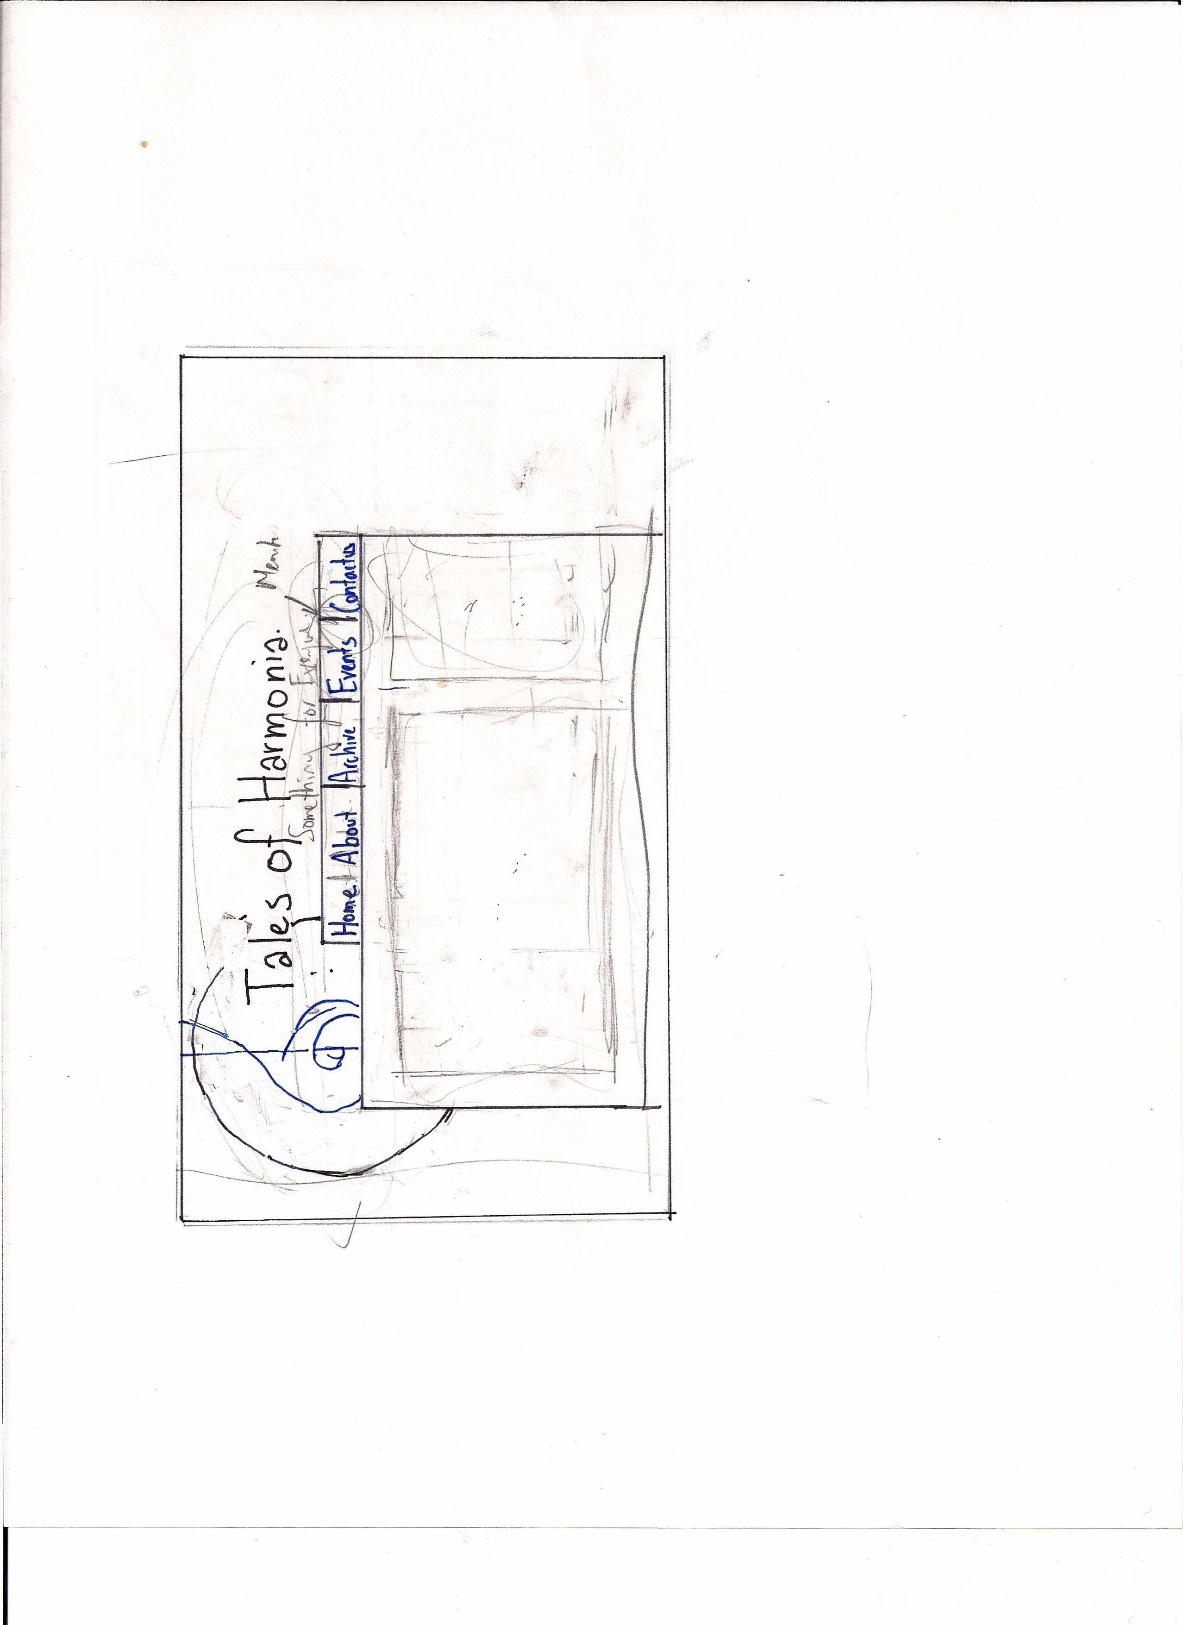 Tales of Harmonia.
Something for Everyone
Home About Archive Events Contactus